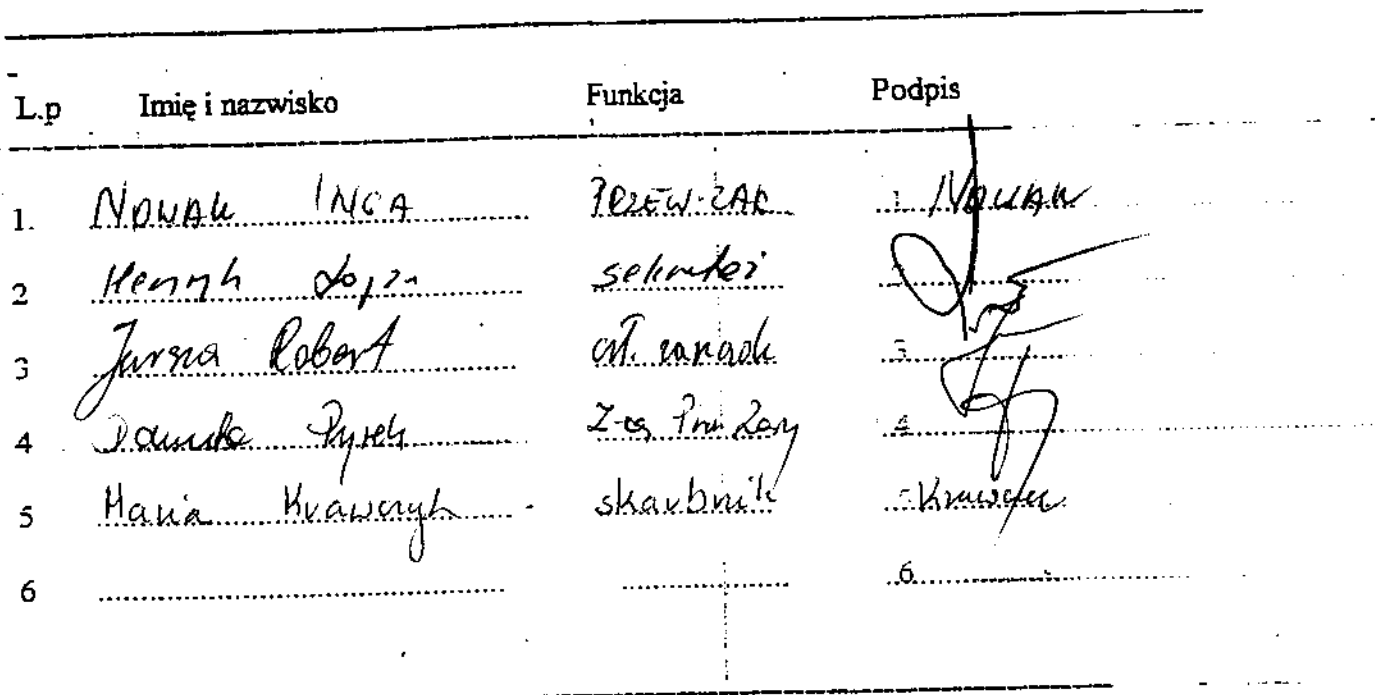 L.p Imię i nazwisko Funkcja Podpis
1. NOWAK INGA PRZEW. ZAR 1 NOWAK
2 Henryk sekretarz 2
3 Jursza Robert czł. zarządu 3
4 Danuta Pyrek Z-ca Prw Zarz 4
5 Maria Krawczyk skarbnik 5 Krawczyk
6 6